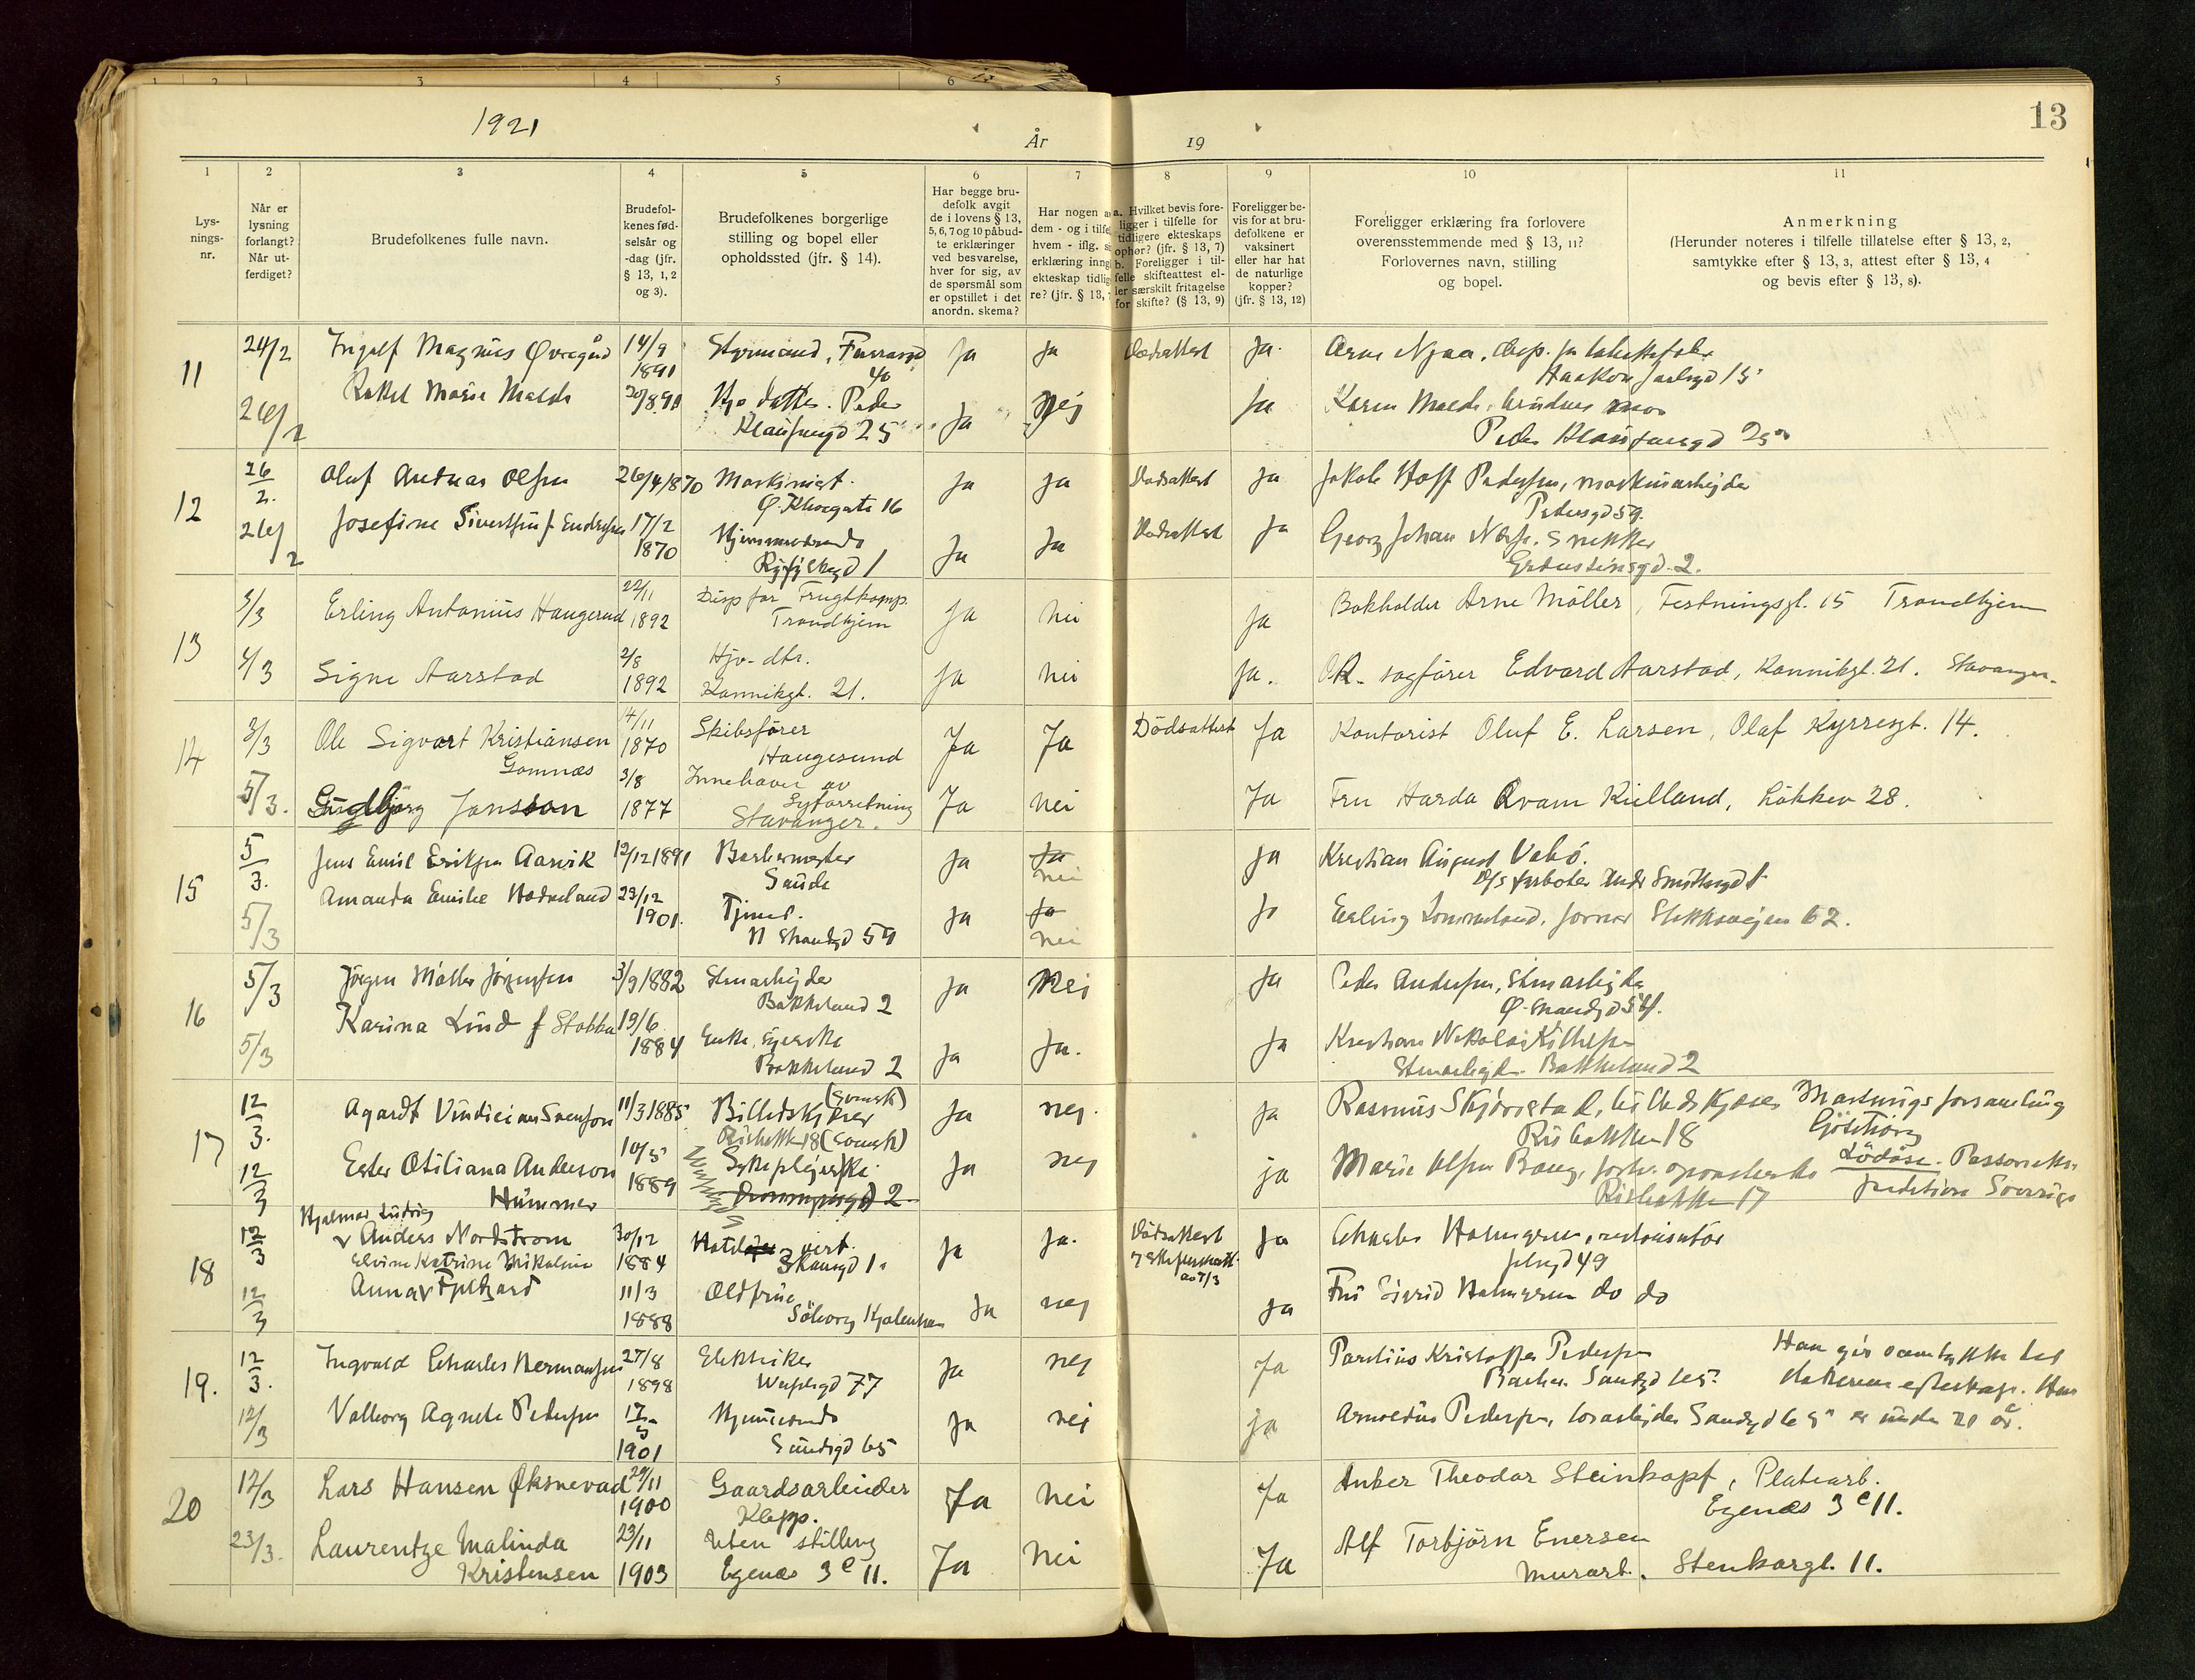 13
1921
År
19
1 2 3 4 5 6 7 8 9 10 11
Lys-
nings-
nr.
Når er
lysning
forlangt?
Når ut-
ferdiget?
Brudefolkenes fulle navn.
Brudefol-
kenes fød-
selsår og
-dag (jfr.
§ 13, 1, 2
og 3).
Brudefolkenes borgerlige
stilling og bopel eller
opholdssted (jfr. § 14).
Har begge bru-
defolk avgit
de i lovens § 13,
5, 6, 7 og 10 påbud-
te erklæringer
ved besvarelse,
hver for sig, av
de spørsmål som
er opstillet i det
anordn. skema?
Har nogen
dem - og i tilfe
hvem - iflg.
erklæring inng
ekteskap tidlig
re? (jfr. § 13,
a. Hvilket bevis fore-
ligger i tilfelle for
tidligere ekteskaps
ophør? (jfr. § 13, 7)
b. Foreligger i til-
felle skifteattest el-
ler særskilt fritagelse
for skifte? (§ 13, 9)
Foreligger be-
vis for at bru-
defolkene er
vaksinert
eller har hat
de naturlige
kopper?
(jfr. § 13, 12)
Foreligger erklæring fra forlovere
overensstemmende med § 13, 11?
Forlovernes navn, stilling
og bopel.
Anmerkning
(Herunder noteres i tilfelle tillatelse efter § 13, 2,
samtykke efter § 13, 3, attest efter § 13, 4
og bevis efter § 13, 8).
11 24/2 Ingolf Magnus Øvregård 14/9 1891 Styrmand, Ja Ja Dødsattest Ja. Arne Njaa,
Haakon Jarlsgd 15
26/2 Rakel Marie Malde 20/8 91 datter. Peder Klausensgd 25 Ja Nej Ja Karen Malde, brudens mor
Peder Klausensgd 25
12 26/2. Oluf Andreas Olsen 26/4 1870 Maskinist. Ø. Kleivegate 16 Ja Ja Dødsattest Ja Jakob Hoff Pedersen, maskinarbejder
Pedersgd 59.
26/2 Josefine Sivertsen f. Endresen 17/2 1870 Ryfylkegd 1 Ja Ja Dødsattest Ja Georg Johan snekker
2.
13 3/3 Erling Antonius Haugerud 22/11 1892 Disp for Frugtkomp. Trondhjem Ja Nei Ja Bokholder Arne Möller, Festningsgt. 15 Trondhjem
4/3 Signe Aarstad 2/8 1892 Hjv. dtr. Kannikgt. 21. Ja Nei Ja. O.R. sagfører Edvard Aarstad, Kannikgt. 21. Stavanger.
14 3/3 Ole Sigvart Kristiansen Gomnæs 14/11 1870 Skibsfører Haugesund Ja Ja Dödsattest Ja Kontorist Oluf E. Larsen, Olaf Kyrresgt. 14.
5/3. Jansson 3/8 1877 Innehaver av Syforretning Stavanger. Ja Nei Ja Fru Harda Qvam Kielland, Løkkev 28.
15 5/3. Jens Emil Eriksen Aarvik 12/12 1891 Barbermester Sauda Ja Ja nei Ja Kristian August Vabö.
5/3 Amanda Emilie Hodneland 23/12 1901. Tjenest. N Strandgd 59 Ja Ja nei Ja Erling Lommeland, former 62.
16 5/3 Jörgen Möller Jörgensen 3/9 1882 Stenarbejder Bakkeland 2 Ja Nei Ja Peder Andersen, Stenarbejder
Ø. Strandgd 54.
5/3 Karina Lund f Stokka 19/6 1884 Enke, Bakkeland 2 Ja Ja. Ja Kristian Nikolai
Stenarbejder Bakkeland 2
17 12/3. Agardt Vindician Svenson 11/3 1885 Billedskjærer (svensk) 18 Ja nej. Ja Rasmus Skjørestad, billedskjærer 18
Mastuugs forsamling Göteborg
12/3 Ester Otiliana Anderson Hummer 10/5 1889 (svensk) Sykeplejerske 2 Ja nej ja Marie Olsen 17
Lödöse. Sverrige
18 12/3 Hjalmar Ludvig Anders Nordstrom 30/12 1884 Hotel vert. Skansgd 1. Ja Ja. Dødsattest Ja Charles Holmgren,
49
12/3 Elvine Katrine Mikaline Anna Fjeltgard 11/3 1888 Oldfrue Sölvorg Ja nej Ja Fru Sigrid Holmgren do do
19. 12/3. Ingvald Charles Hermansen 27/8 1898 Elektriker 77 Ja nej Ja Paulius Kristoffer Pedersen
Sandgd 65. Han gir samtykke til datterens ekteskap. Hun
12/3 Valborg Agnete Pedersen 17/5 1901 Sandgd 65 Ja nej ja Arnoldus Pedersen, Sandgd 65 er under 20 år.
20 12/3 Lars Hansen Øksnevad 29/11 1900 Gaardsarbeider Klepp. Ja Nei Ja Anker Theodor Steinkopf, Platearb.
Egenes 3 e 11.
23/3. Laurentze Malinda Kristensen 23/11 1903 Uten stilling Egenes 3 e 11. Ja Nei Ja Alf Torbjörn Enersen
Murarb. Stenkargt. 11.